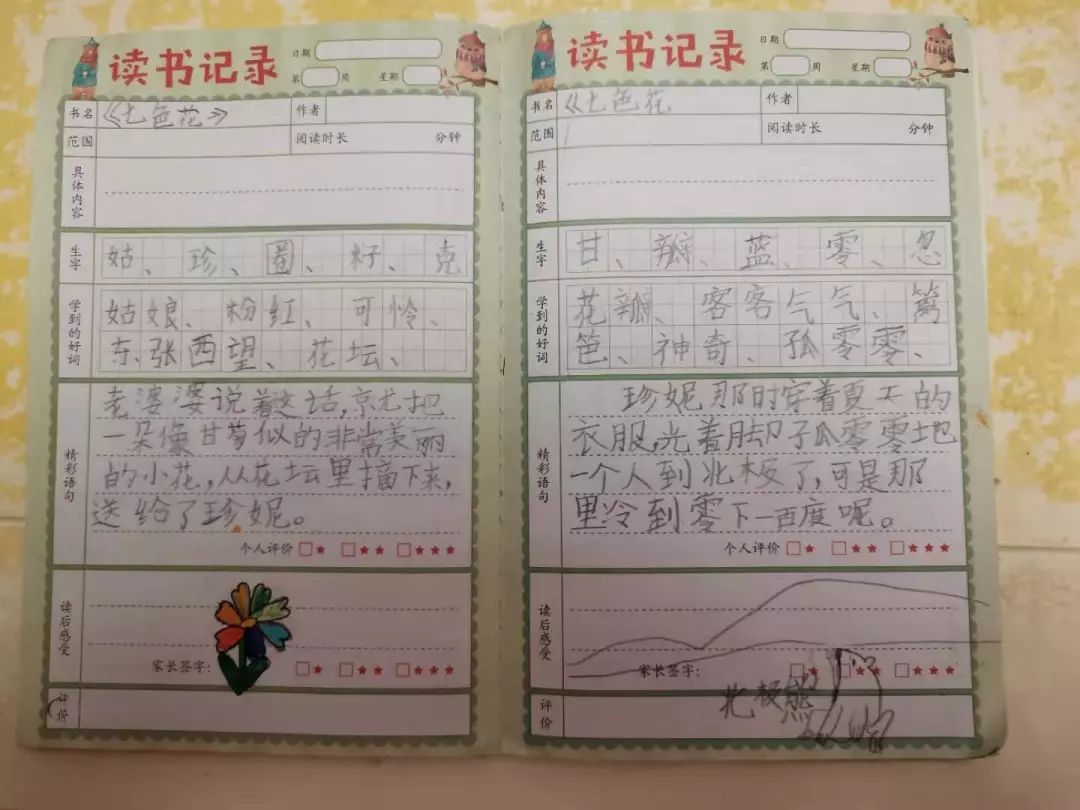 读书记录
日期
第 周 星期
书名 《七色花》 作者
范围 阅读时长 分钟
具体内容
生字 姑、珍、圈、籽、克
学到的好词 姑娘、粉红、可怜、
东张西望、花坛、
精彩语句
老婆婆说着这话,京尤把
一朵像甘菊似的非常美丽
的小花,从花坛里摘下来,
送给了珍妮。
个人评价 □★ □★★ □★★★
读后感受
家长签字: □★ □★★ □★★★
评价
读书记录
日期
第 周 星期
书名 《七色花 作者
范围 阅读时长 分钟
具体内容
生字 甘、瓣、蓝、零、忽
学到的好词 花瓣、客客气气、篱
笆、神奇、孤零零、
精彩语句
珍妮那时穿着夏天的
衣服,光着脚子瓜零零地
一个人到北极了,可是那
里冷到零下一百度呢。
个人评价 □★ □★★ □★★★
读后感受
家长签字: □★ □★★ □★★★
北极熊
评价